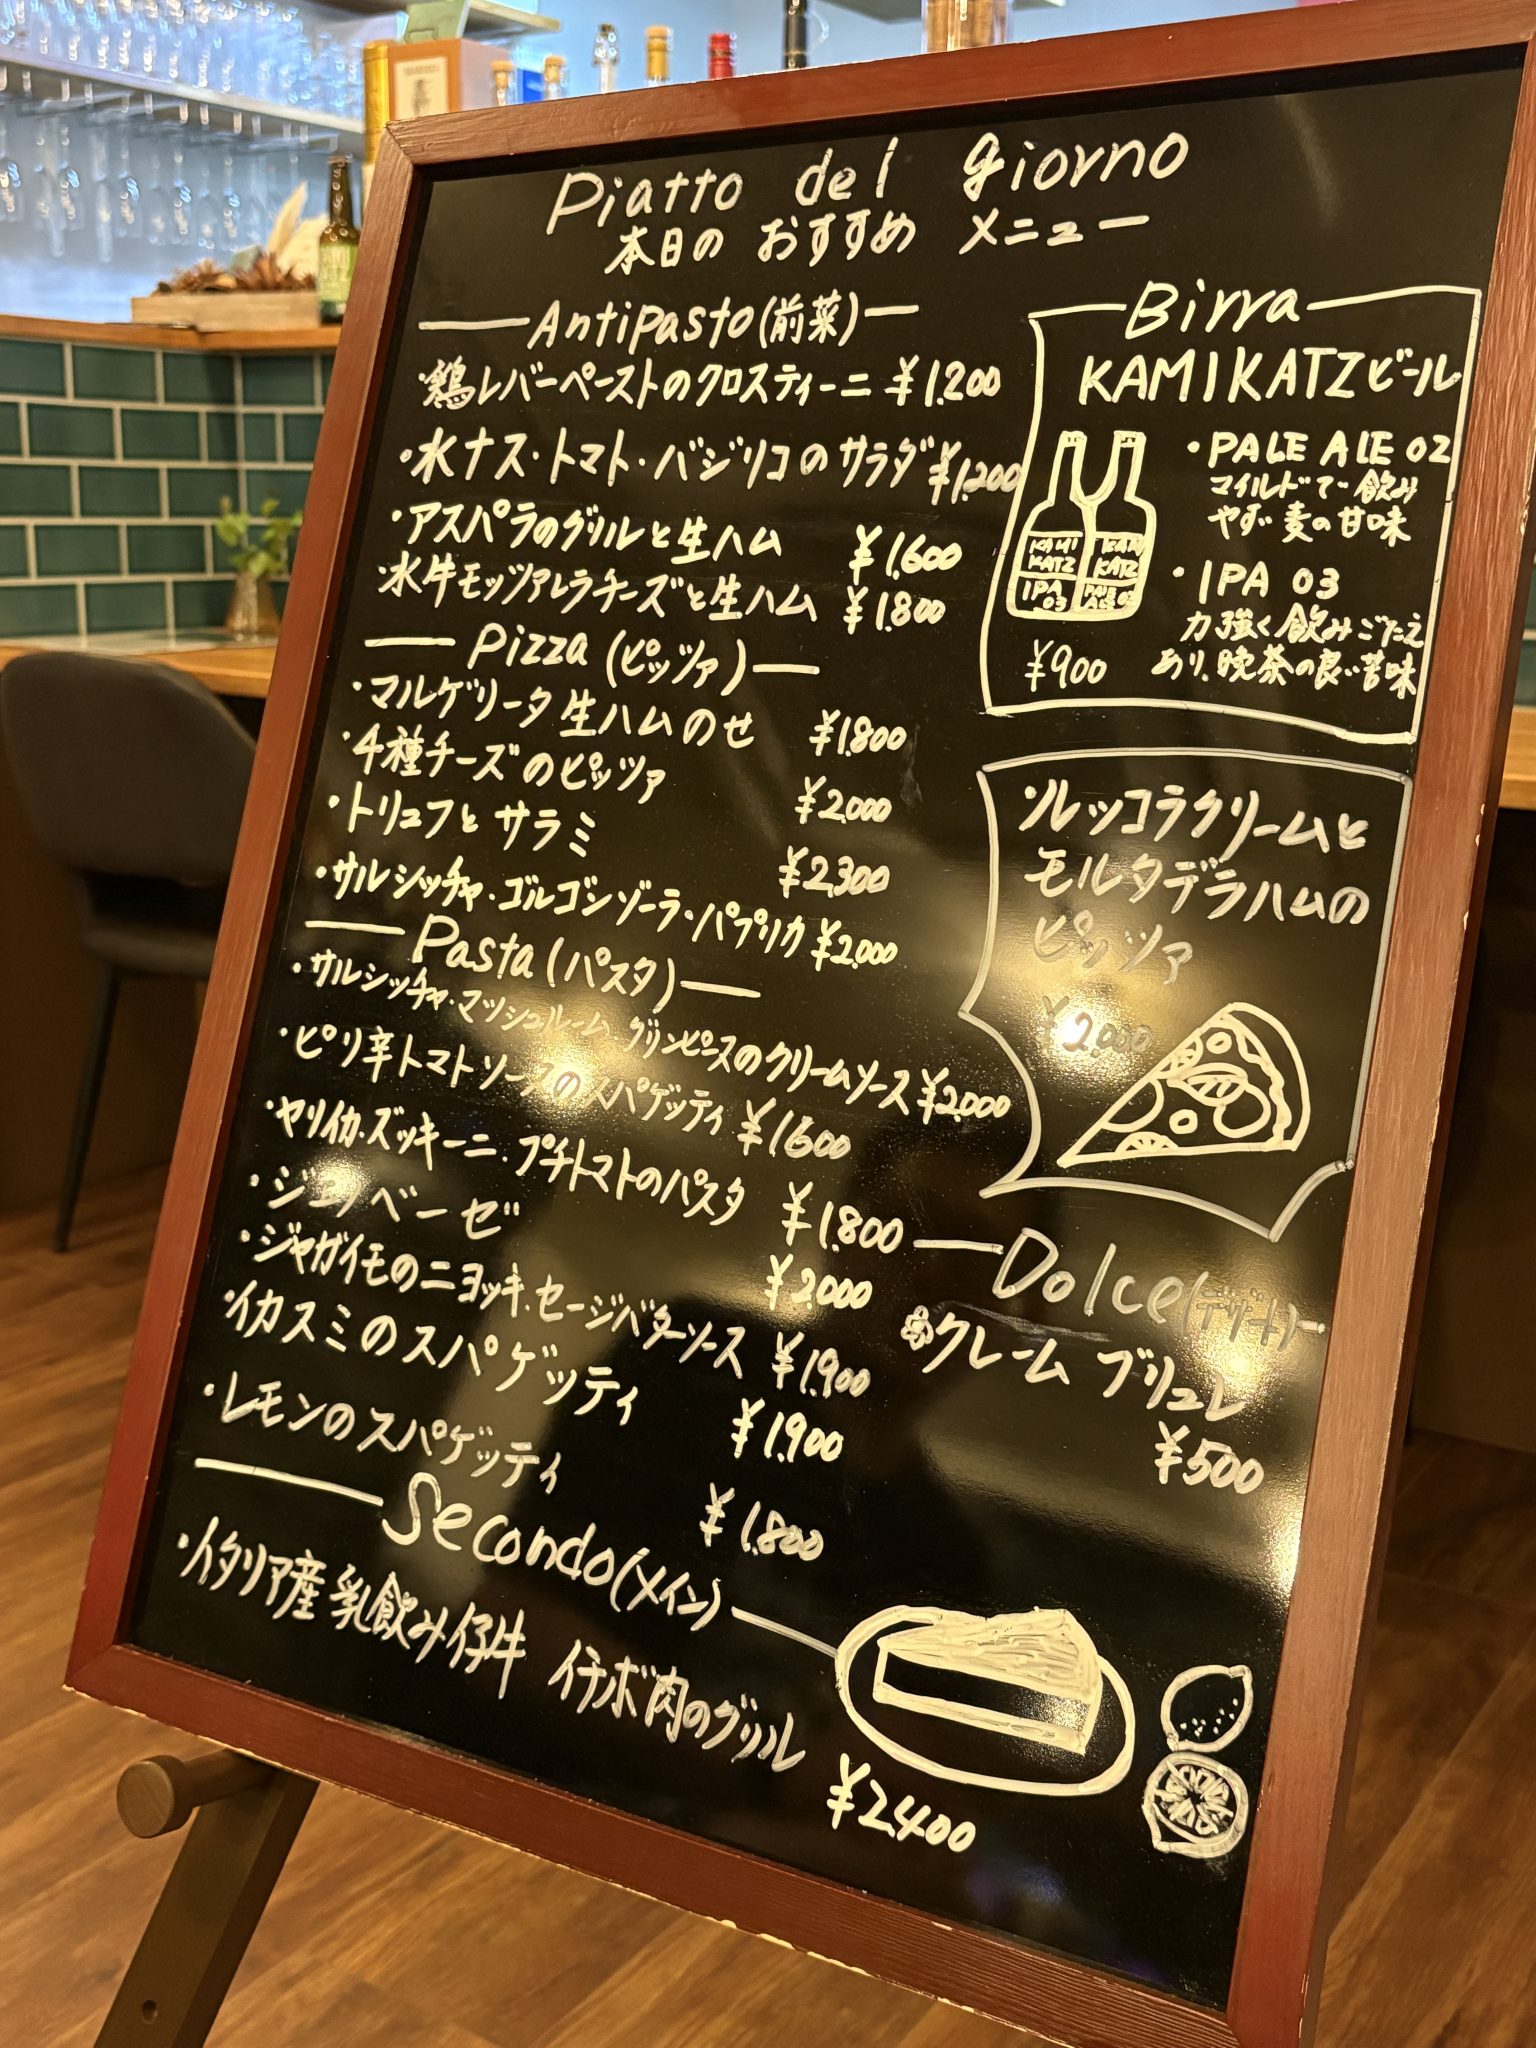 Piatto del giorno
本日の おすすめ メニュー
Antipasto(前菜)
・鶏レバーペーストのクロスティーニ ¥1.200
・水ナス・トマト・バジリコのサラダ ¥1.200
・アスパラのグリルと生ハム ¥1.600
・水牛モッツァレラチーズと生ハム ¥1.800
Pizza(ピッツァ)
・マルゲリータ生ハムのせ ¥1.800
・4種チーズのピッツァ ¥2.000
・トリュフとサラミ ¥2.300
・サルシッチャ・ゴルゴンゾーラ・パプリカ ¥2.000
Pasta(パスタ)
・サルシッチャ・マッシュルーム、グリンピースのクリームソース ¥2.000
・ピリ辛トマトソースのスパゲッティ ¥1.600
・ヤリイカ、ズッキーニ、プチトマトのパスタ ¥1.800
・ジェノベーゼ ¥2.000
・ジャガイモのニョッキ、セージバターソース ¥1.900
・イカスミのスパゲッティ ¥1.900
・レモンのスパゲッティ ¥1.800
Secondo(メイン)
・イタリア産乳飲み仔牛 イチボ肉のグリル
¥2.400
Birra
KAMIKATZビール
・PALE ALE 02
マイルドで飲み
やすい麦の甘味
・IPA 03
力強く飲みごたえ
あり、晩茶の良い苦味
KAMI
KATZ
IPA
03
KAMI
KATZ
PALE
ALE 02
¥900
・ルッコラクリームと
モルタデラハムの
ピッツァ
¥2.000
Dolce(デザート)
クレーム ブリュレ
¥500